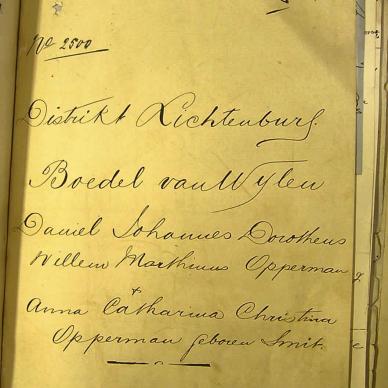 No 2500
Distrikt Lichtenburg.
Boedel van Wylen
Daniel Johannes Dorotheus
Willem Marthinus Opperman
+
Anna Catharina Christina
Opperman geboren Smit.